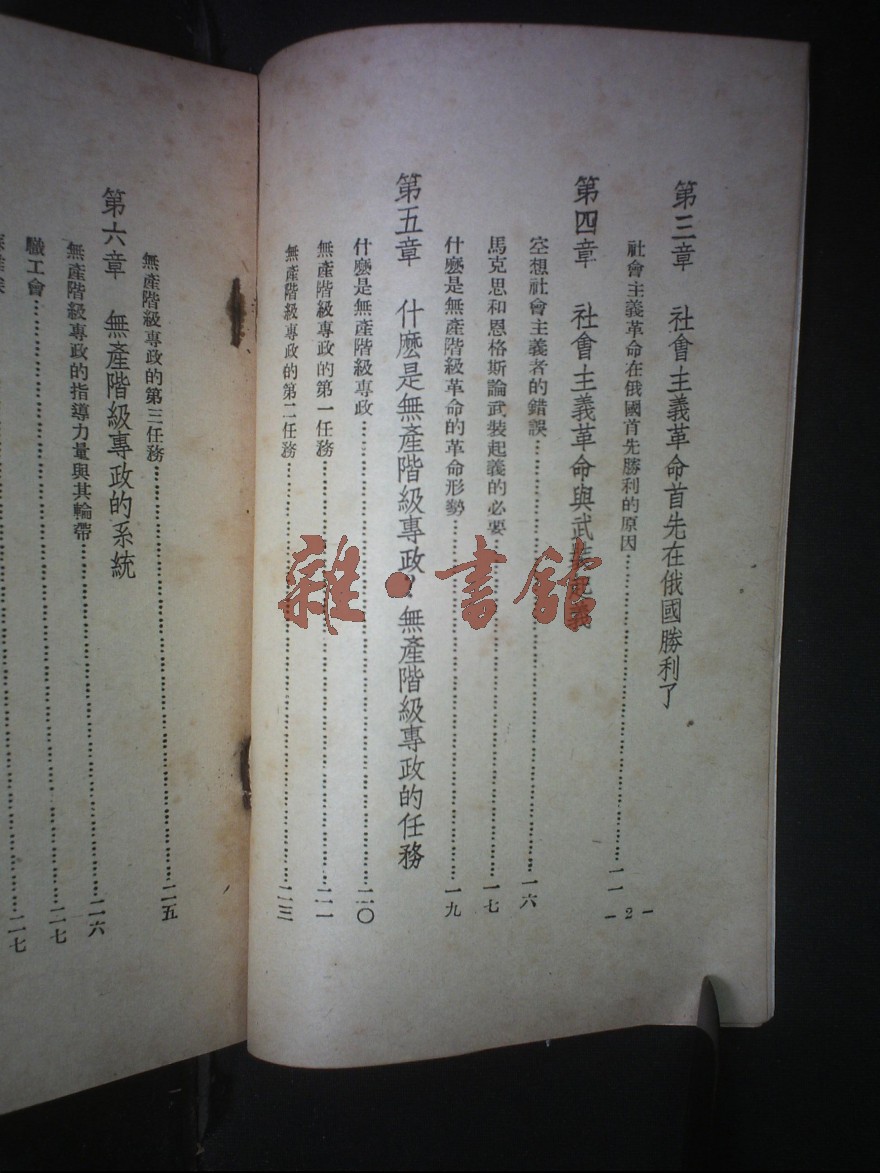 第三章 社會主義革命首先在俄國勝利了
社會主義革命在俄國首先勝利的原因……一一
第四章 社會主義革命與武裝起義
空想社會主義者的錯誤……一六
馬克思和恩格斯論武裝起義的必要……一七
什麽是無產階級革命的革命形勢……一九
第五章 什麽是無產階級專政？無產階級專政的任務
什麽是無產階級專政……二〇
無產階級專政的第一任務……二一
無產階級專政的第二任務……二三
— 2 —
無產階級專政的第三任務……二五
第六章 無產階級專政的系統
無產階級專政的指導力量與其輪帶……二六
職工會……二七
……二七
雜·書館